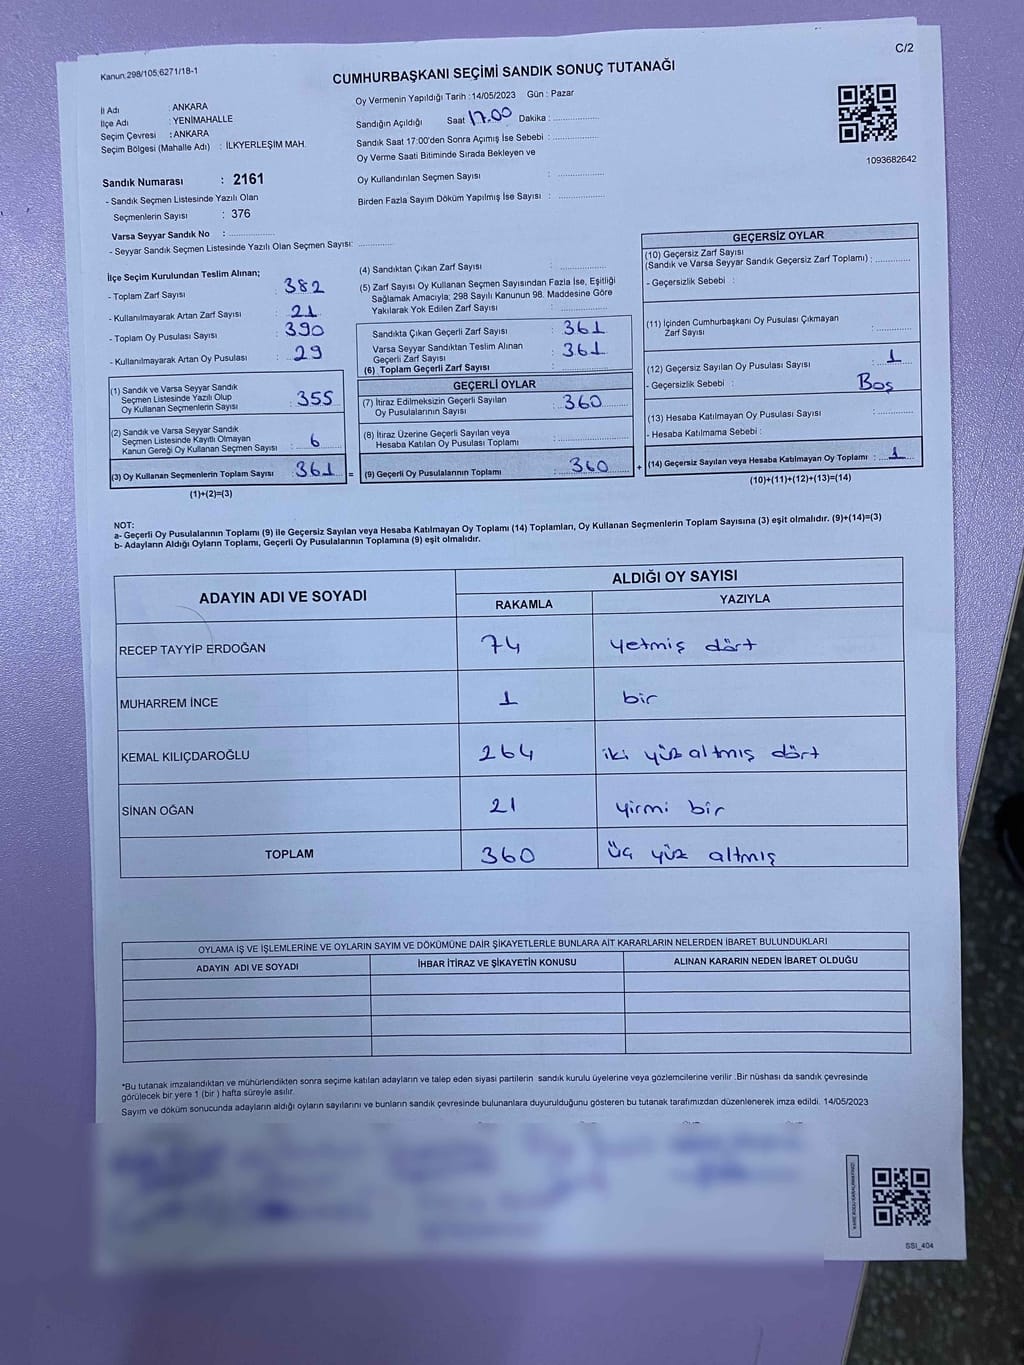 Kanun.298/105;6271/18-1
C/2
CUMHURBAŞKANI SEÇİMİ SANDIK SONUÇ TUTANAĞI
İl Adı : ANKARA
İlçe Adı : YENİMAHALLE
Seçim Çevresi : ANKARA
Seçim Bölgesi (Mahalle Adı) : İLKYERLEŞİM MAH.
Sandık Numarası : 2161
- Sandık Seçmen Listesinde Yazılı Olan
Seçmenlerin Sayısı : 376
Varsa Seyyar Sandık No : ....................
- Seyyar Sandık Seçmen Listesinde Yazılı Olan Seçmen Sayısı: ...............
Oy Vermenin Yapıldığı Tarih :14/05/2023 Gün : Pazar
Sandığın Açıldığı Saat 17.00 Dakika : ...............
Sandık Saat 17:00'den Sonra Açımış İse Sebebi : ...............
Oy Verme Saati Bitiminde Sırada Bekleyen ve
Oy Kullandırılan Seçmen Sayısı : ...............
Birden Fazla Sayım Döküm Yapılmış İse Sayısı : ...............
1093682642
İlçe Seçim Kurulundan Teslim Alınan;
- Toplam Zarf Sayısı : 382
- Kullanılmayarak Artan Zarf Sayısı : 21
- Toplam Oy Pusulası Sayısı : 390
- Kullanılmayarak Artan Oy Pusulası : 29
(1) Sandık ve Varsa Seyyar Sandık
Seçmen Listesinde Yazılı Olup
Oy Kullanan Seçmenlerin Sayısı : 355
(2) Sandık ve Varsa Seyyar Sandık
Seçmen Listesinde Kayıtlı Olmayan
Kanun Gereği Oy Kullanan Seçmen Sayısı : 6
(3) Oy Kullanan Seçmenlerin Toplam Sayısı : 361 =
(1)+(2)=(3)
(4) Sandıktan Çıkan Zarf Sayısı : ...............
(5) Zarf Sayısı Oy Kullanan Seçmen Sayısından Fazla İse, Eşitliği
Sağlamak Amacıyla; 298 Sayılı Kanunun 98. Maddesine Göre
Yakılarak Yok Edilen Zarf Sayısı : ...............
Sandıkta Çıkan Geçerli Zarf Sayısı : 361
Varsa Seyyar Sandıktan Teslim Alınan
Geçerli Zarf Sayısı : 361
(6) Toplam Geçerli Zarf Sayısı : ...............
GEÇERLİ OYLAR
(7) İtiraz Edilmeksizin Geçerli Sayılan
Oy Pusulalarının Sayısı : 360
(8) İtiraz Üzerine Geçerli Sayılan veya
Hesaba Katılan Oy Pusulası Toplamı : ...............
(9) Geçerli Oy Pusulalarının Toplamı : 360 +
GEÇERSİZ OYLAR
(10) Geçersiz Zarf Sayısı
(Sandık ve Varsa Seyyar Sandık Geçersiz Zarf Toplamı) : ............
- Geçersizlik Sebebi :
(11) İçinden Cumhurbaşkanı Oy Pusulası Çıkmayan
Zarf Sayısı : ............
(12) Geçersiz Sayılan Oy Pusulası Sayısı : 1
- Geçersizlik Sebebi : Boş
(13) Hesaba Katılmayan Oy Pusulası Sayısı : ............
- Hesaba Katılmama Sebebi :
(14) Geçersiz Sayılan veya Hesaba Katılmayan Oy Toplamı : 1
(10)+(11)+(12)+(13)=(14)
NOT:
a- Geçerli Oy Pusulalarının Toplamı (9) ile Geçersiz Sayılan veya Hesaba Katılmayan Oy Toplamı (14) Toplamları, Oy Kullanan Seçmenlerin Toplam Sayısına (3) eşit olmalıdır. (9)+(14)=(3)
b- Adayların Aldığı Oyların Toplamı, Geçerli Oy Pusulalarının Toplamına (9) eşit olmalıdır.
ADAYIN ADI VE SOYADI
ALDIĞI OY SAYISI
RAKAMLA YAZIYLA
RECEP TAYYİP ERDOĞAN 74 yetmiş dört
MUHARREM İNCE 1 bir
KEMAL KILIÇDAROĞLU 264 iki yüz altmış dört
SİNAN OĞAN 21 yirmi bir
TOPLAM 360 üç yüz altmış
OYLAMA İŞ VE İŞLEMLERİNE VE OYLARIN SAYIM VE DÖKÜMÜNE DAİR ŞİKAYETLERLE BUNLARA AİT KARARLARIN NELERDEN İBARET BULUNDUKLARI
ADAYIN ADI VE SOYADI İHBAR İTİRAZ VE ŞİKAYETİN KONUSU ALINAN KARARIN NEDEN İBARET OLDUĞU
*Bu tutanak imzalandıktan ve mühürlendikten sonra seçime katılan adayların ve talep eden siyasi partilerin sandık kurulu üyelerine veya gözlemcilerine verilir .Bir nüshası da sandık çevresinde
görülecek bir yere 1 (bir ) hafta süreyle asılır.
Sayım ve döküm sonucunda adayların aldığı oyların sayılarını ve bunların sandık çevresinde bulunanlara duyurulduğunu gösteren bu tutanak tarafımızdan düzenlenerek imza edildi. 14/05/2023
SSI_404